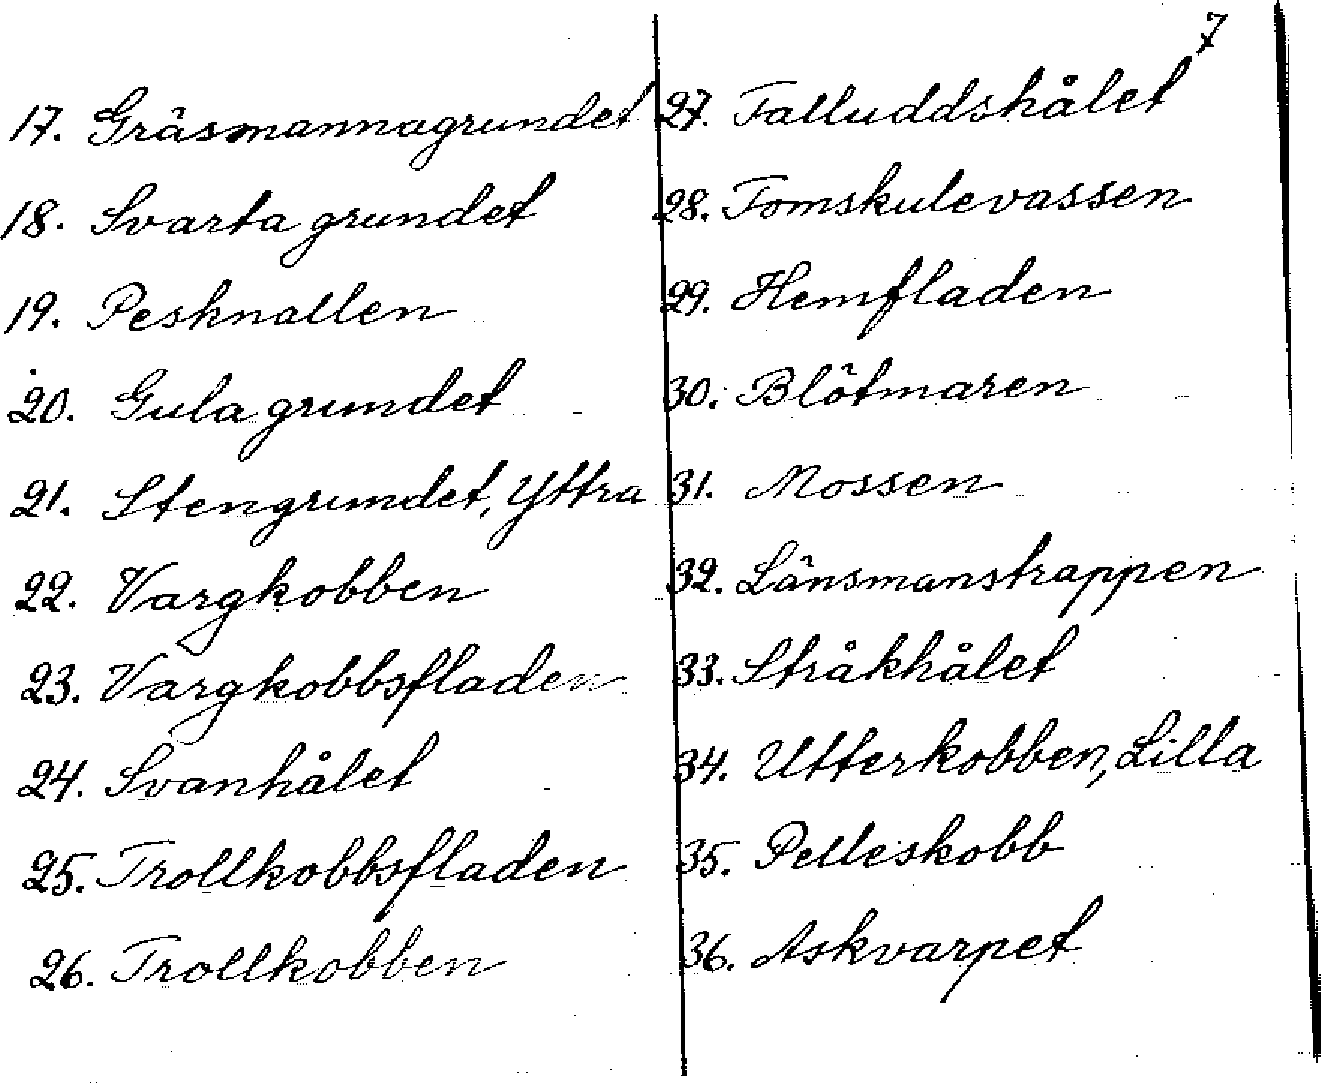 7
17. Gräsmannagrundet
18. Svarta grundet
19. Pesknallen
20. Gula grundet
21. Stengrundet, Yttra
22. Vargkobben
23. Vargkobbsfladen
24. Svanhålet
25. Trollkobbsfladen
26. Trollkobben
27. Talluddshålet
28. Tomskulevassen
29. Hemfladen
30. Blötmaren
31. Mossen
32. Länsmanstrappen
33. Stråkhålet
34. Utterkobben, Lilla
35. Pelleskobb
36. Askvarpet